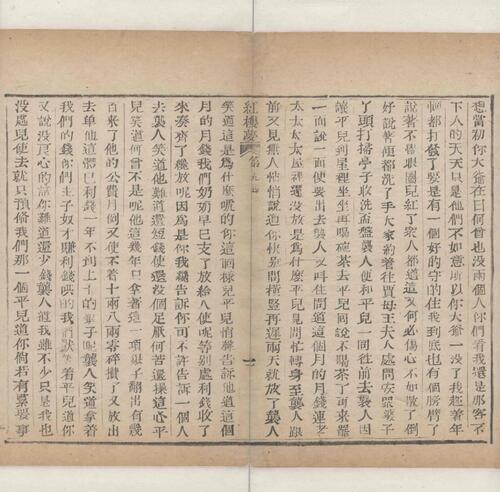 想當初你大爺在日何曾也沒兩個人你們看我還是那容不
下人的天天只是他們不如意所以你大爺一沒了我趁着年
輕都打發了要是有一個好的守的住我到底也有個膀臂了
說着不覺眼圈兒紅了衆人都道這又何必傷心不如散了倒
好說着便都洗了手大家約着往賈母王夫人處問安衆婆子
丫頭打掃亭子收洗盃盤襲人便和平兒一同往前去襲人因
讓平兒到屋裡坐坐再喝碗茶去平兒回說不喝茶了再來罷
一面說一面便要出去襲人又叫住問道這個月的月錢連老
太太太太屋裡還沒放是爲什麽平兒見問忙轉身至襲人跟
前又見無人悄悄說道你快別問橫豎再遲兩天就放了襲人
紅樓夢 一
笑道這是爲什麽唬的你這個樣兒平兒悄聲告訴他道這個
月的月錢我們奶奶早已支了放給人使呢等別處利錢收了
來湊齊了纔放呢因爲是你我纔告訴你可不許告訴一個人
去襲人笑道他難道還短錢使還沒個足厭何苦還操這心平
兒笑道何曾不是呢他這幾年只拿着這一項銀子翻出有幾
百來了他的公費月例又使不着十兩八兩零碎攢了又放出
去單他這體己利錢一年不到上千的銀子呢襲人笑道拿着
我們的錢你們主子奴才賺利錢哄的我們獃等着平兒道你
又說沒良心的話你難道還少錢使襲人道我雖不少只是我也
沒處兒使去就只預備我們那一個平兒道你倘若有緊要事